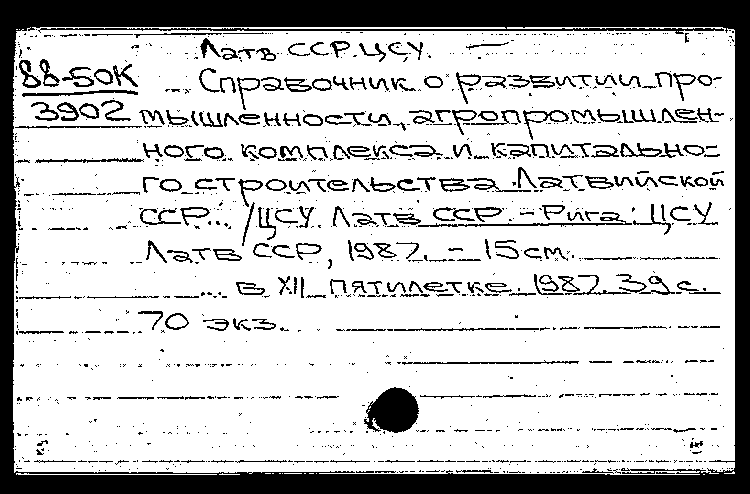 Латв ССР. ЦСУ. —
88-50К
3902
Справочник о развитии про-
мышленности, агропромышлен-
ного комплекса и капитально-
го строительства Латвийской
ССР... / ЦСУ Латв ССР. - Рига: ЦСУ
Латв ССР, 1987. - 15 см.
... в XII пятилетке. 1987. 39 с.
70 экз.